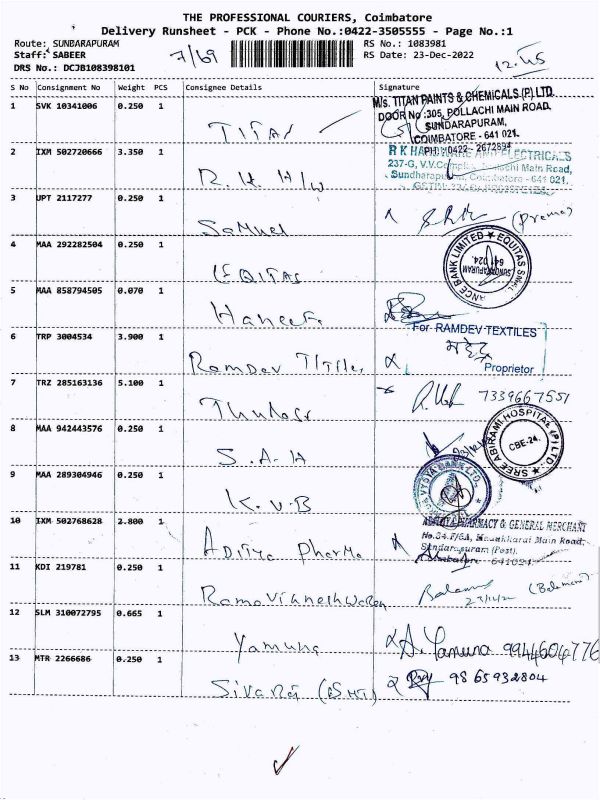 THE PROFESSIONAL COURIERS, Coimbatore
Delivery Runsheet - PCK - Phone No.:0422-3505555 - Page No.:1
Route: SUNDARAPURAM
RS No.: 1083981
Staff: SABEER
7/69
RS Date: 23-Dec-2022
DRS No.: DCJB108398101
S No Consignment No Weight PCS Consignee Details Signature
1 SVK 10341006 0.250 1 TITAN
M/s. TITAN PAINTS & CHEMICALS (P) LTD.
DOOR No :305, POLLACHI MAIN ROAD,
SUNDARAPURAM,
COIMBATORE - 641 021.
PH: 0422- 2672894
2 IXM 502720666 3.350 1 R.K H/W
R K HARDWARE AND ELECTRICALS
237-G, V.V.Complex, Pollachi Main Road,
Sundharapuram, Coimbatore - 641 021.
3 UPT 2117277 0.250 1 Samuel
(Prema)
4 MAA 292282504 0.250 1 EQITAS
EQUITAS SMALL FINANCE BANK LIMITED
SUNDARAPURAM
641 024.
5 MAA 858794505 0.070 1 Haneefa
6 TRP 3004534 3.900 1 Ramdev
For RAMDEV TEXTILES
Proprietor
7 TRZ 285163136 5.100 1 Thulasi
7339667551
8 MAA 942443576 0.250 1 S.A.H
SREE ABIRAMI HOSPITAL (P) LTD.
CBE-24.
9 MAA 289304946 0.250 1 K.V.B
VYSYA BANK LTD.
10 IXM 502768628 2.800 1 Aditya Pharma
PHARMACY & GENERAL MERCHANT
Main Road,
Sundarapuram (Post),
641024
11 KDI 219781 0.250 1 Rama Vigneshwaran
23/12/22
12 SLM 310072795 0.665 1 Yamuna
A. Yamuna 9944604776
13 MTR 2266686 0.250 1 Sivaraj
9865932804